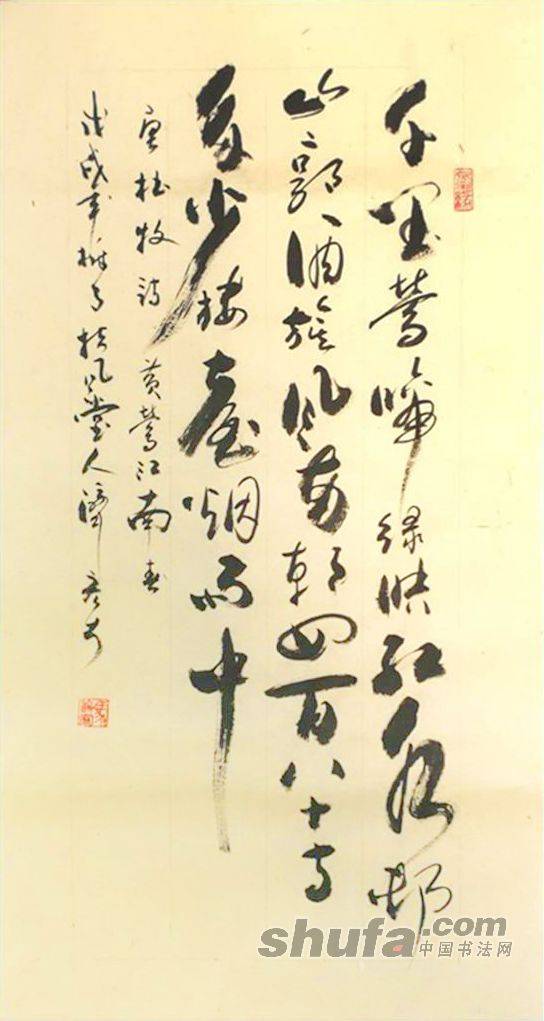 千里鶯啼绿映红水邨
山郭酒旗风南朝四百八十寺
多少楼臺烟雨中
唐杜牧诗 黄鶯江南春
戊戌年 扶风堂人
shufa.com
中国书法网